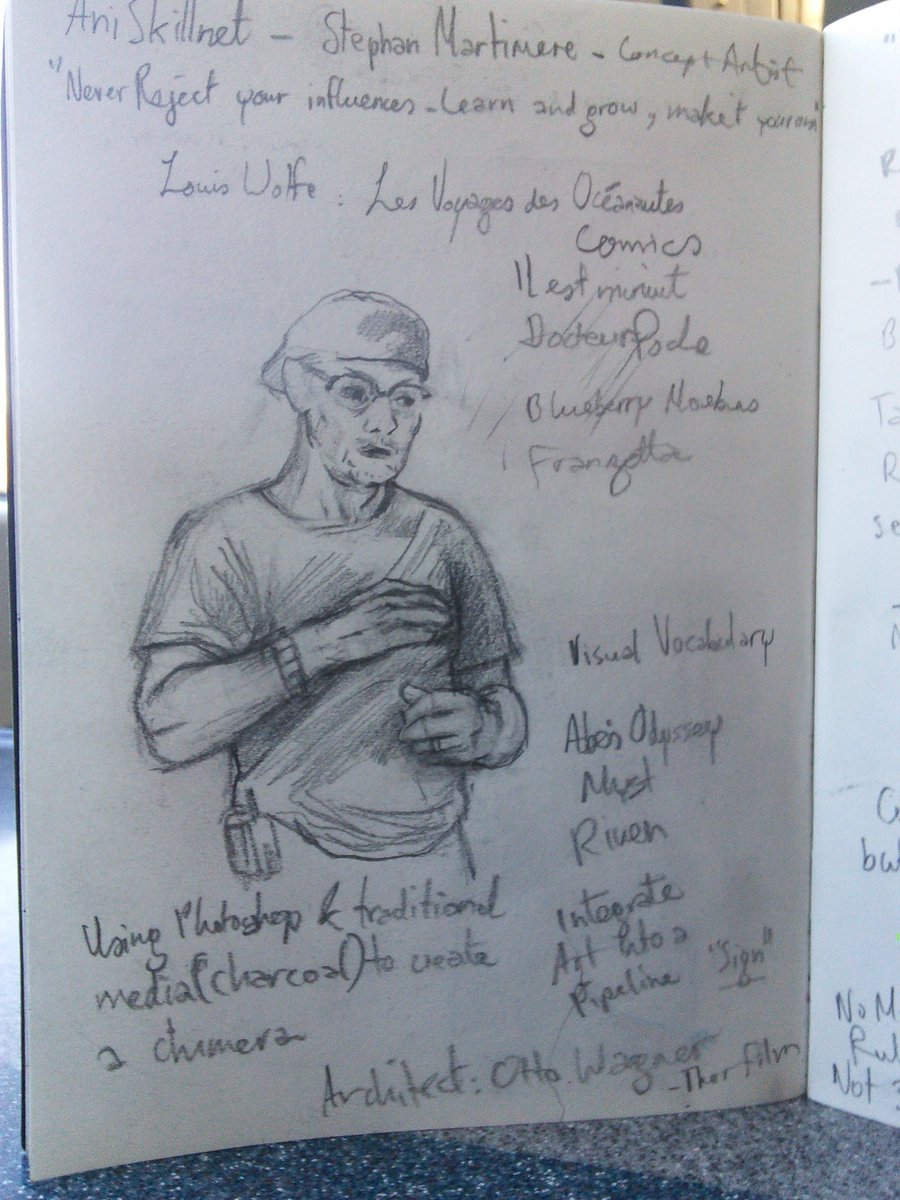 Ani Skillnet - Stephan Martimere - Concept Artist
"Never Reject your influences - Learn and grow, make it your own"
Louis Wolfe : Les Voyages des Océanautes
Comics
Il est minuit
Docteur Poche
Blueberry Moebius
Franzetta
Visual Vocabulary
Abe's Odyssey
Myst
Riven
Integrate
Art Into a
Pipeline "Sign"
Using Photoshop & traditional
media (charcoal) to create
a chimera
Architect: Otto Wagner
- Thor Film
"
R
B
Ta
R
se
C
but
No M
Rul
Not